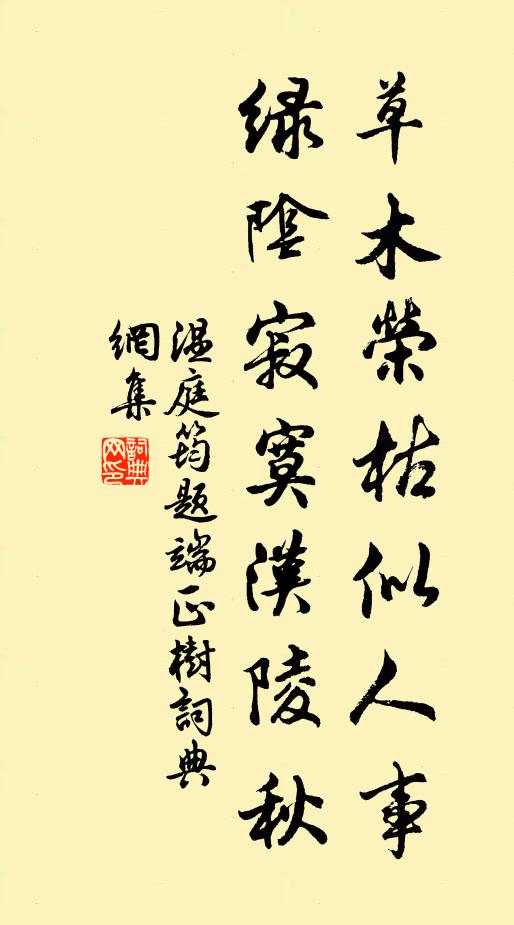 草木榮枯似人事
綠陰寂寞漢陵秋
溫庭筠題端正樹詞典
網集
詞典網印